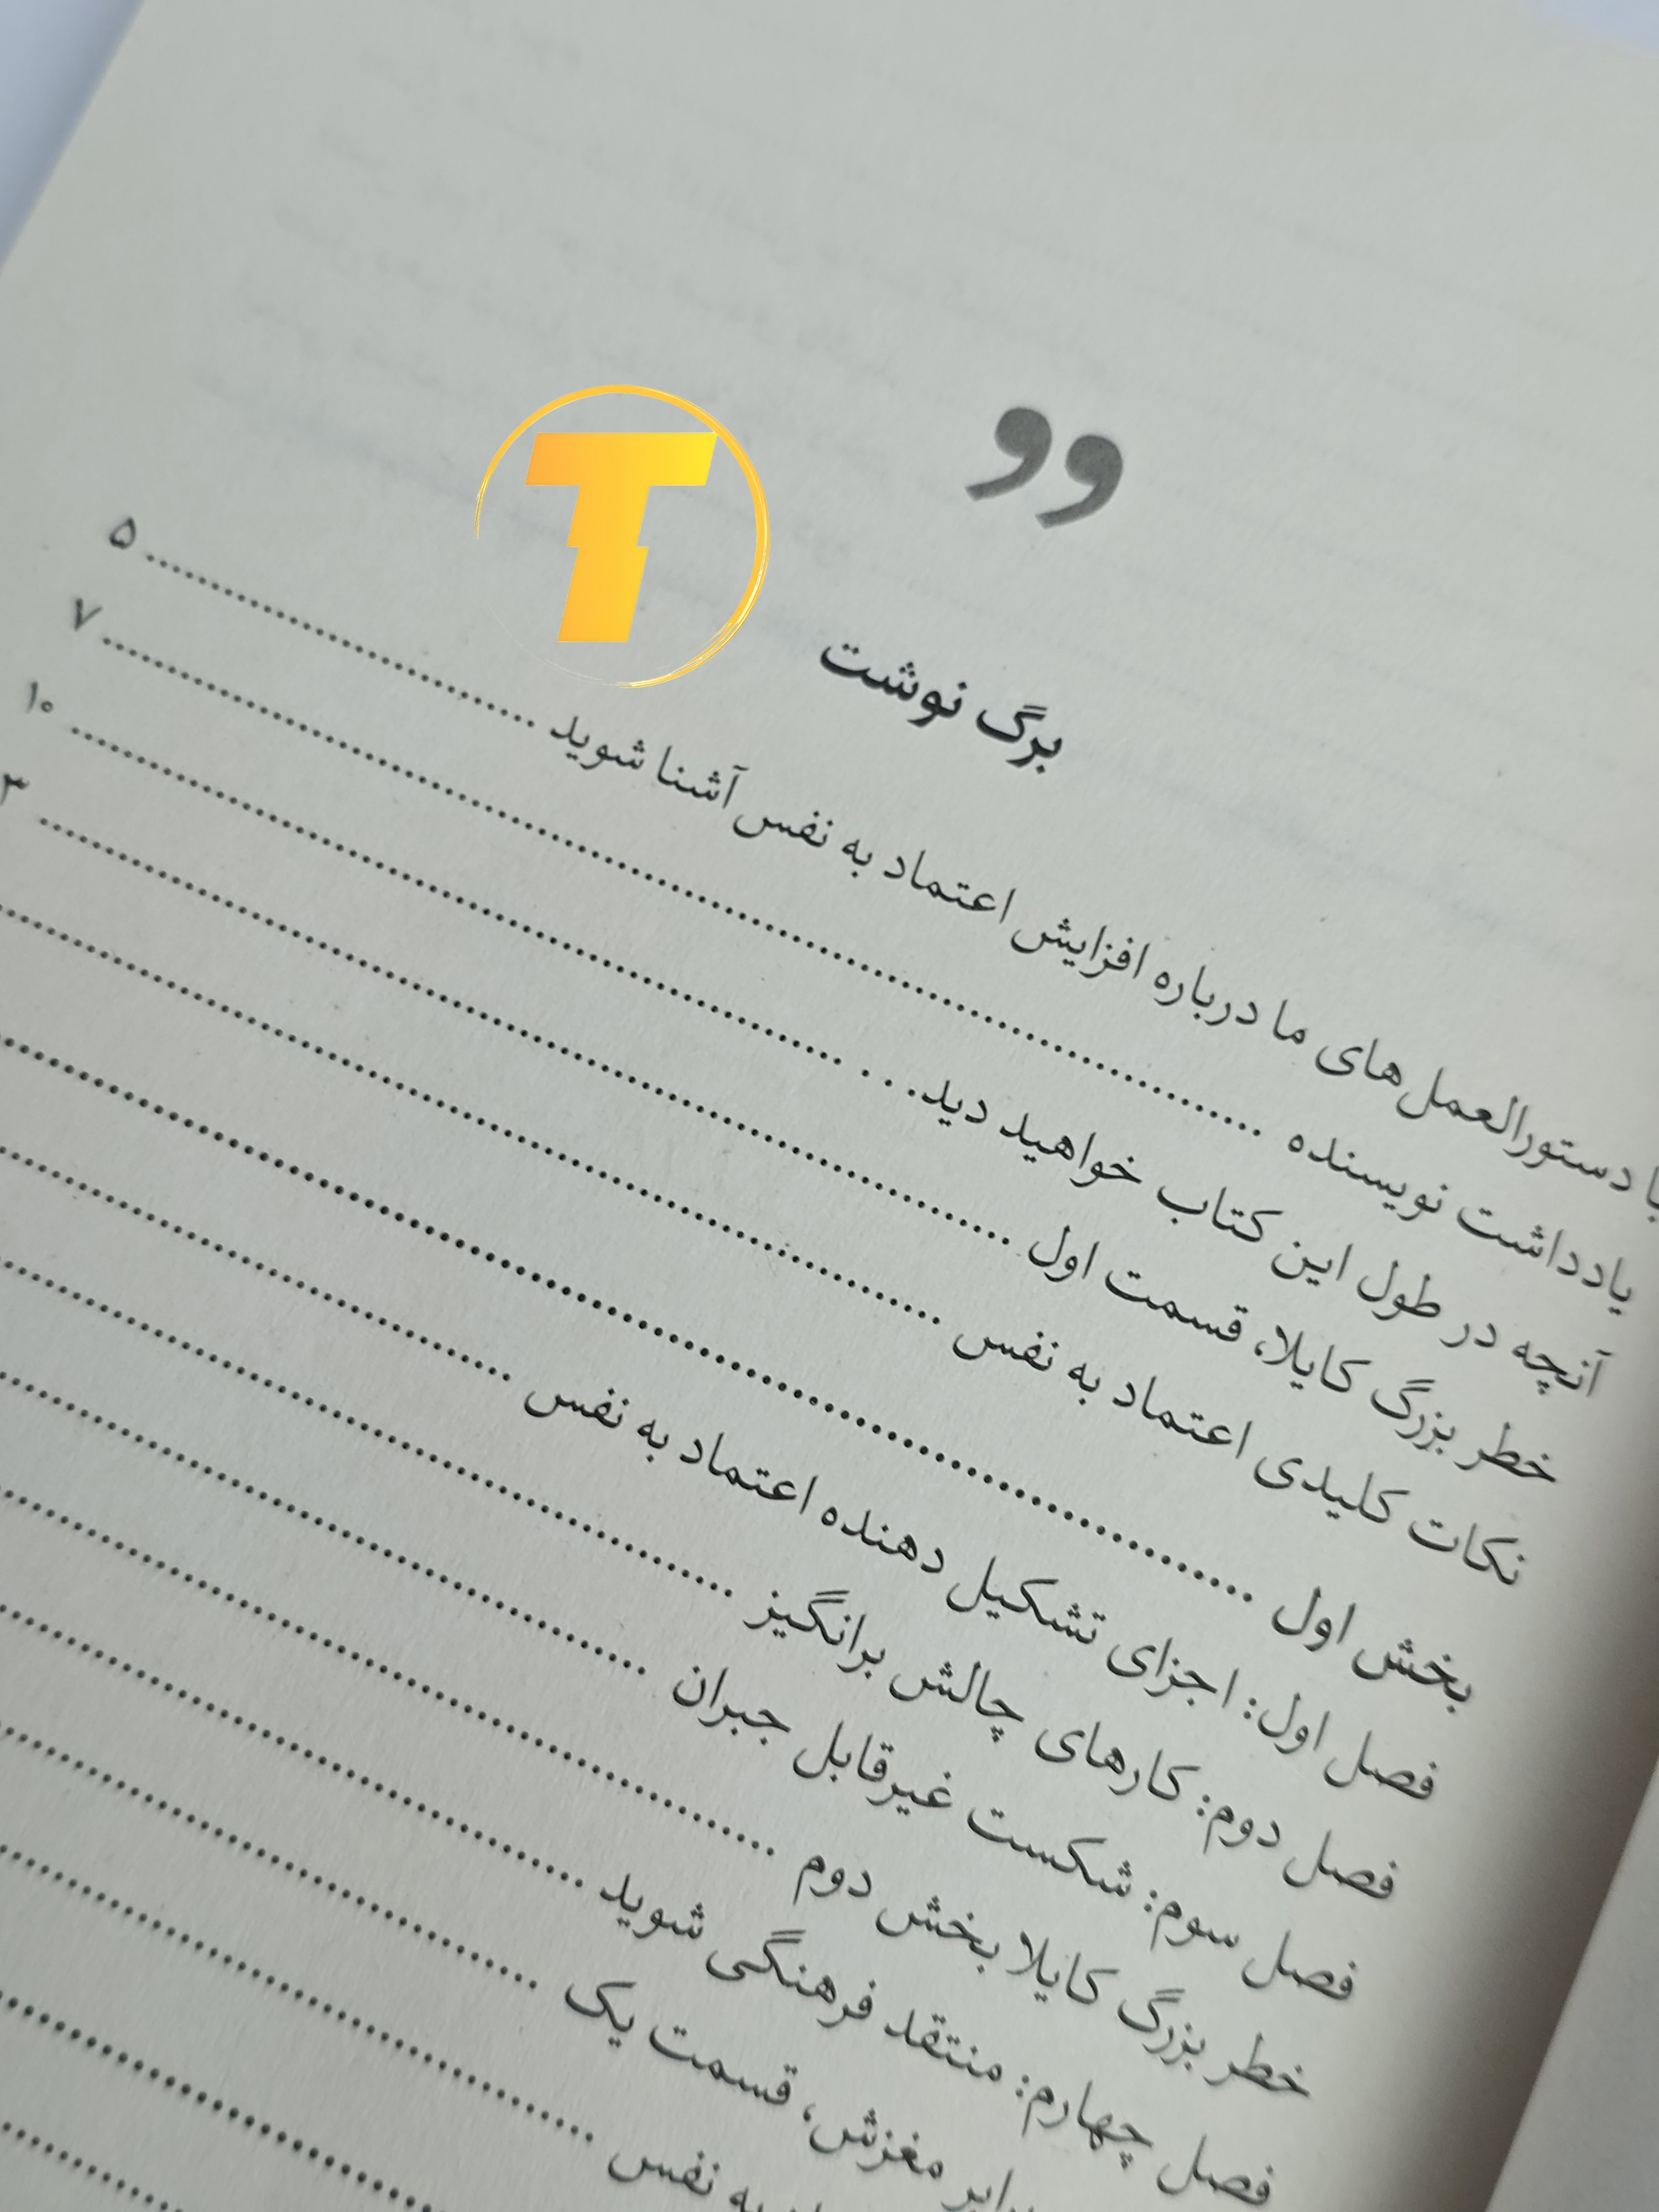 وو
T
برگ نوشت
با دستورالعمل‌های ما درباره افزایش اعتماد به نفس آشنا شوید ........ ۵
یادداشت نویسنده ........ ۷
آنچه در طول این کتاب خواهید دید ........ ۱۰
خطر بزرگ کایلا، قسمت اول ........ ۳
نکات کلیدی اعتماد به نفس ........
بخش اول ........
فصل اول: اجزای تشکیل دهنده اعتماد به نفس ........
فصل دوم: کارهای چالش برانگیز ........
فصل سوم: شکست غیرقابل جبران ........
خطر بزرگ کایلا بخش دوم ........
فصل چهارم: منتقد فرهنگی شوید ........
مغزش، قسمت یک ........
به نفس ........